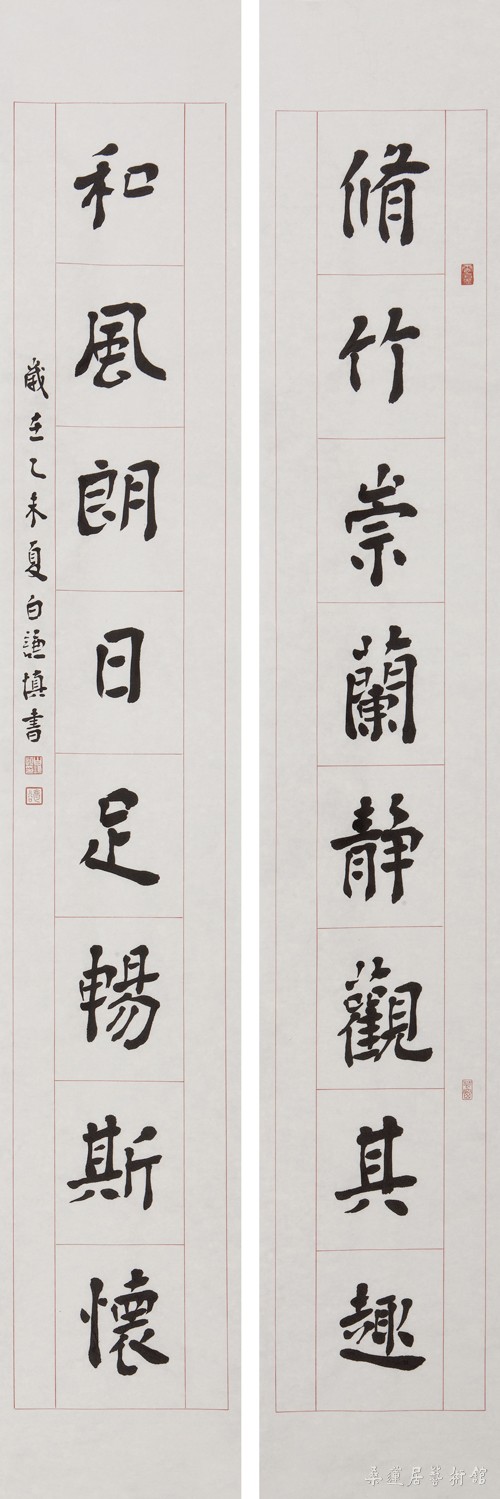 脩竹崇蘭靜觀其趣
和風朗日足暢斯懷
歲在乙未夏白謙慎書
桑蓮居藝術館